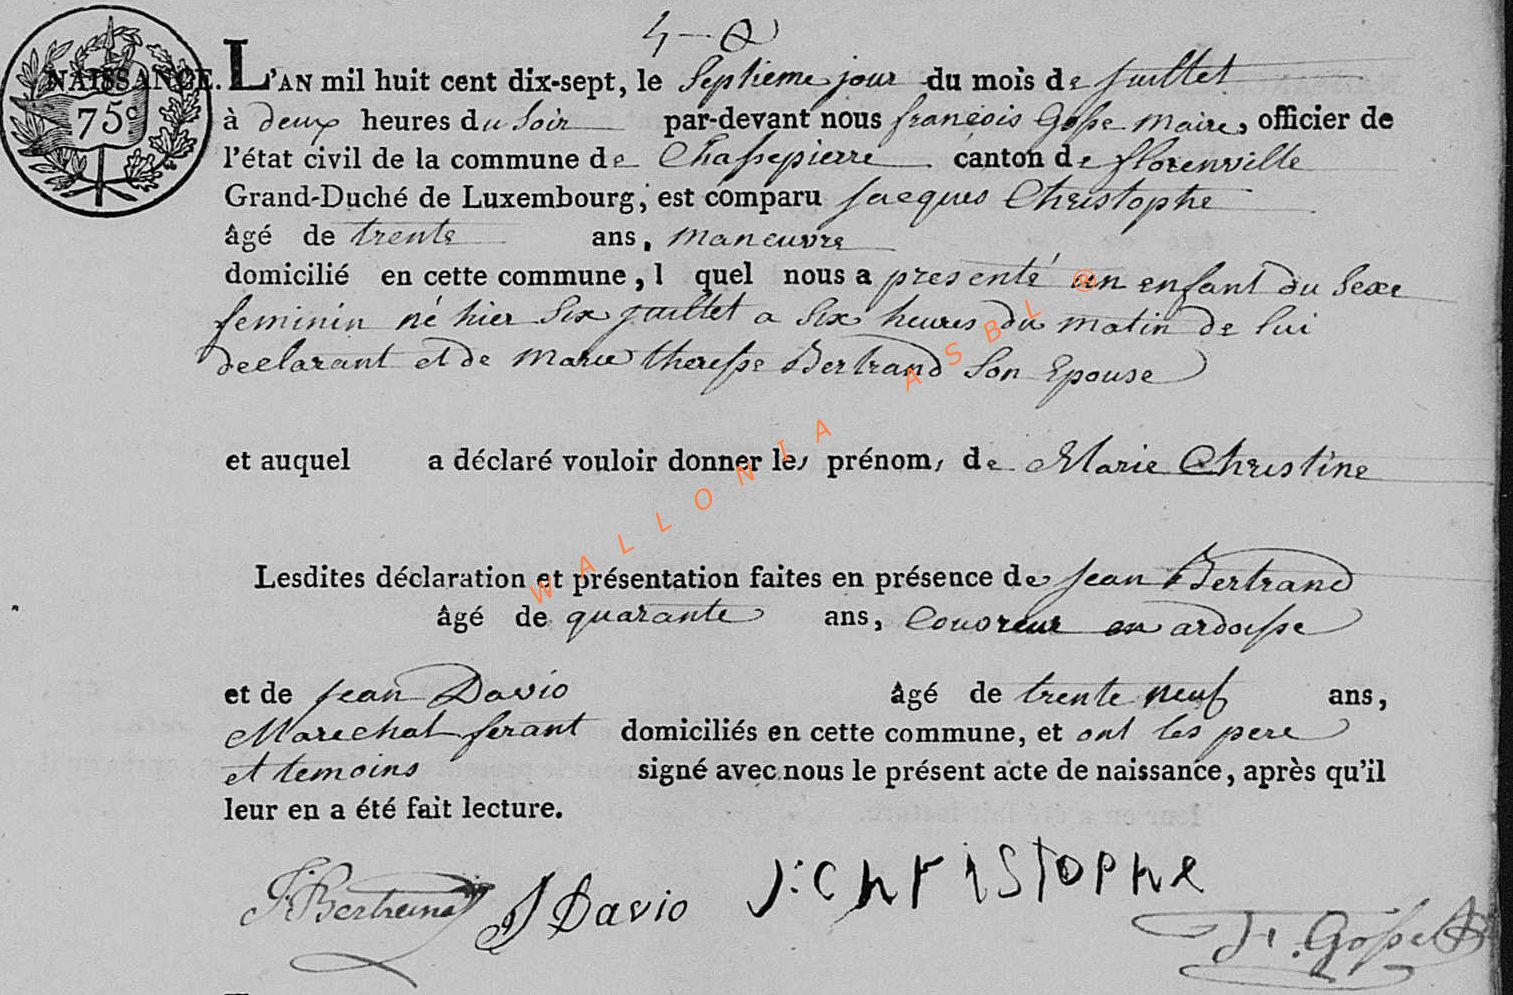 NAISSANCE.
75 c
L'AN mil huit cent dix-sept, le Septieme jour du mois de juillet
à deux heures du Soir par-devant nous françois Gosse Maire, officier de
l'état civil de la commune de Chassepierre canton de florenville
Grand-Duché de Luxembourg, est comparu jacques Christophe
âgé de trente ans, maneuvre
domicilié en cette commune, l quel nous a presenté un enfant du Sexe
feminin né hier Six juillet a Six heures du matin de lui
declarant et de marie theresse Bertrand Son Epouse
et auquel a déclaré vouloir donner les prénoms de Marie Christine
Lesdites déclaration et présentation faites en présence de jean Bertrand
âgé de quarante ans, Couvreur en ardoisse
et de jean Davio âgé de trente neuf ans,
Marechal ferant domiciliés en cette commune, et ont les pere
et temoins signé avec nous le présent acte de naissance, après qu'il
leur en a été fait lecture.
J: Bertrand J Davio J: Christophe
F. Gosse
WALLONIA ASBL ®